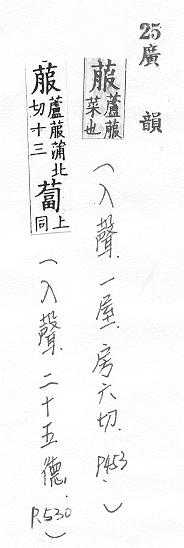 25廣韻
菔蘆菔菜也(入聲.一屋.房六切.P453.)
菔蘆菔蒲北切十三蔔上同(入聲.二十五德.P.530)